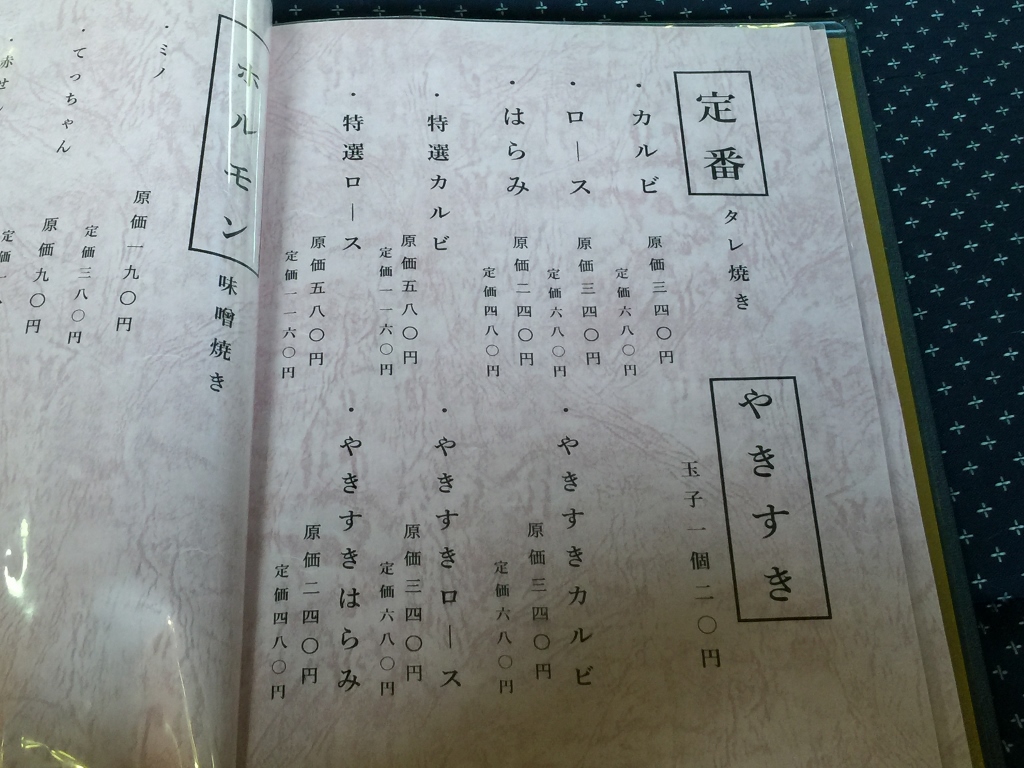 定番
タレ焼き
・カルビ
原価三四〇円
定価六八〇円
・ロース
原価三四〇円
定価六八〇円
・はらみ
原価二四〇円
定価四八〇円
・特選カルビ
原価五八〇円
定価一一六〇円
・特選ロース
原価五八〇円
定価一一六〇円
やきすき
玉子一個二〇円
・やきすきカルビ
原価三四〇円
定価六八〇円
・やきすきロース
原価三四〇円
定価六八〇円
・やきすきはらみ
原価二四〇円
定価四八〇円
ホルモン
味噌焼き
・ミノ
原価一九〇円
定価三八〇円
・てっちゃん
原価九〇円
定価一
・赤せん